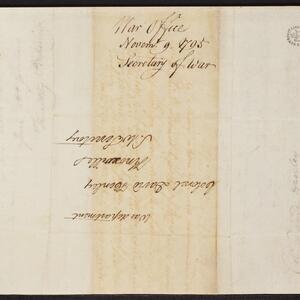 War Office
Novemr 9. 1795
Secretary of War
War department
Colonel David Henley
Knoxville
S. W. Territory